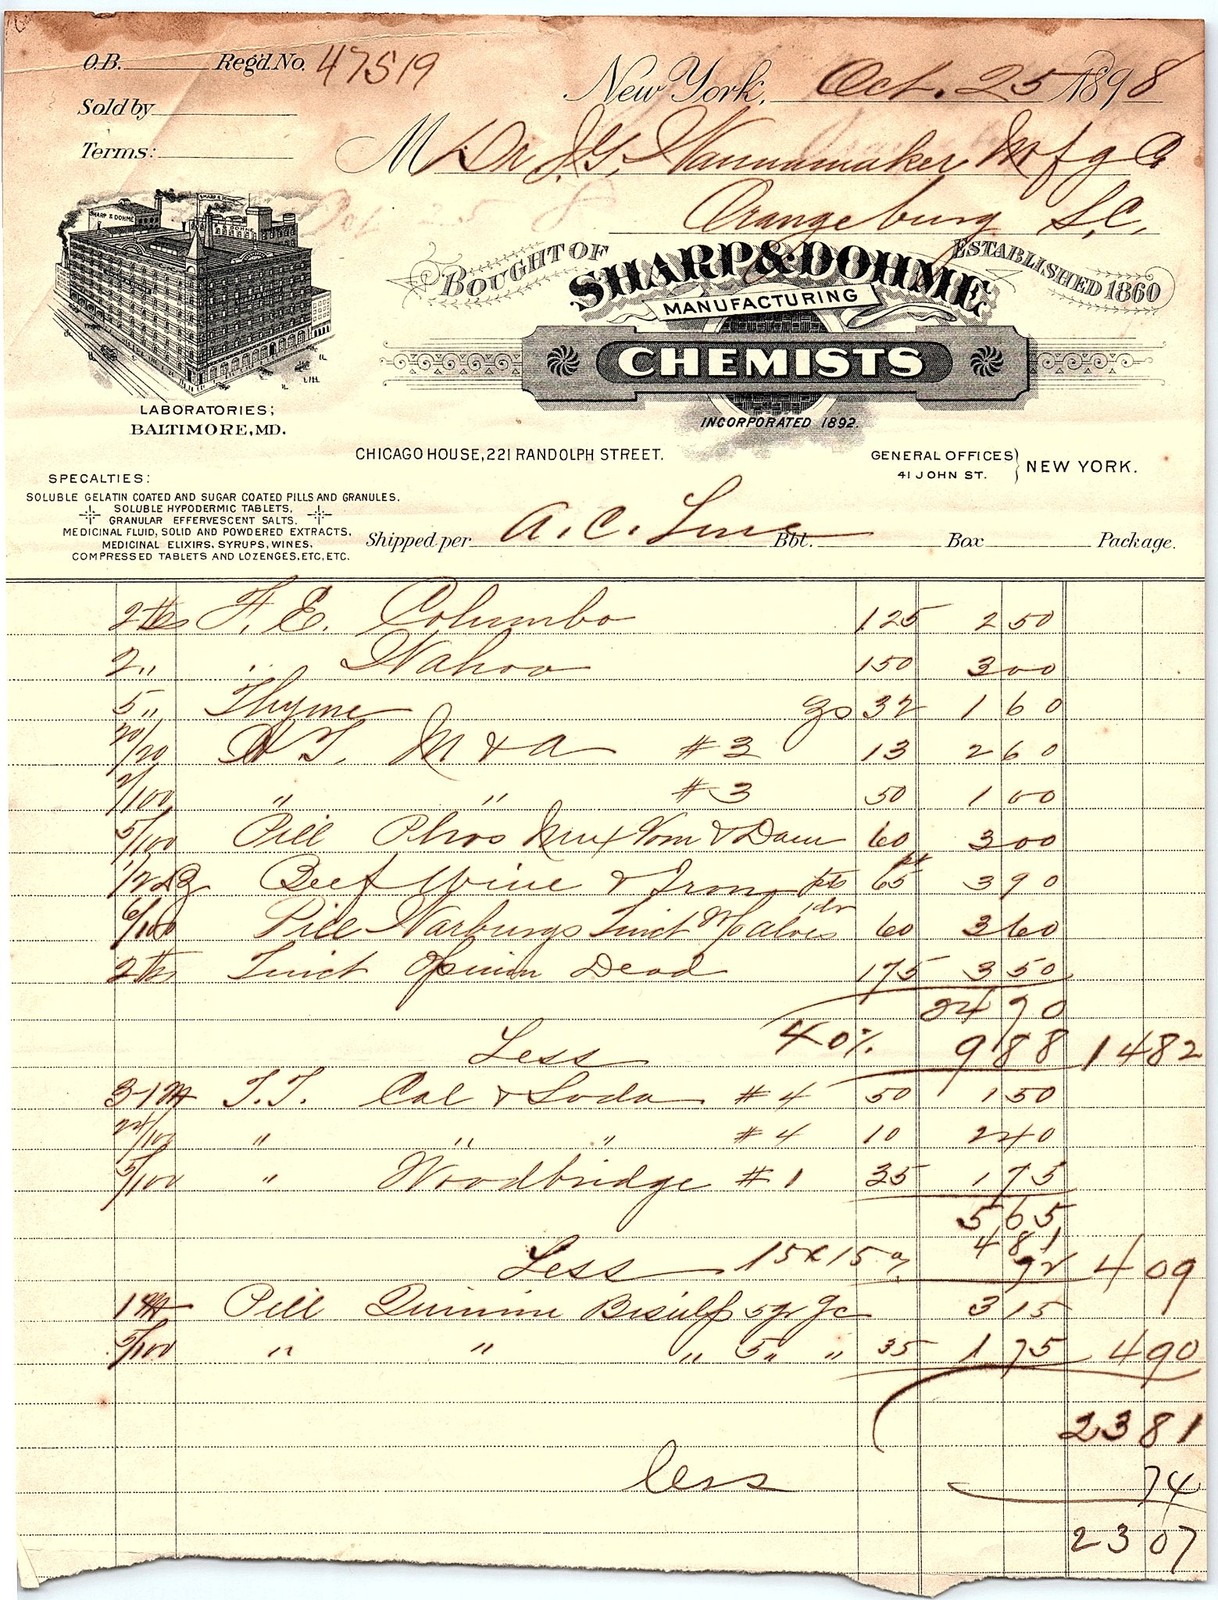 O.B. Reg'd. No. 47519
New York, Oct. 25 1898
Sold by
Terms:
M Dr J.G. Wannamaker Mfg Co
Orangeburg S.C.
Oct 25 8
SHARP & DOHME
BOUGHT OF SHARP & DOHME ESTABLISHED 1860
MANUFACTURING
CHEMISTS
INCORPORATED 1892.
LABORATORIES;
BALTIMORE, MD.
CHICAGO HOUSE, 221 RANDOLPH STREET.
GENERAL OFFICES
41 JOHN ST. } NEW YORK.
SPECIALTIES:
SOLUBLE GELATIN COATED AND SUGAR COATED PILLS AND GRANULES.
SOLUBLE HYPODERMIC TABLETS.
GRANULAR EFFERVESCENT SALTS.
MEDICINAL FLUID, SOLID AND POWDERED EXTRACTS.
MEDICINAL ELIXIRS, SYRUPS, WINES,
COMPRESSED TABLETS AND LOZENGES, ETC, ETC.
Shipped per A.C. Line Bbt. Box Package.
2 lbs F. E. Columbo 125 2 50
2 " " Wahoo 150 3 00
5 " Thyme gs 32 1 60
20/20 M & A #3 13 2 60
2/100 " " #3 50 1 00
5/100 Pill Phos Nux Vom & Dam 60 3 00
1/2 Beef Wine & Iron pts 65 3 90
6/100 Pill Warburgs Tinct 60 3 60
2 lbs Tinct Opium Deod 175 3 50
24 70
Less 40% 9 88 14 82
3-1M T.T. Cal & Soda #4 50 1 50
24/100 " " " #4 10 2 40
5/100 " Woodbridge #1 35 1 75
5 65
4 81
Less 15 x 15% 72 4 09
1M Pill Quinine Bisulf 5 gr gc 3 15
5/100 " " " 5 " " 35 1 75 4 90
23 81
less 74
23 07